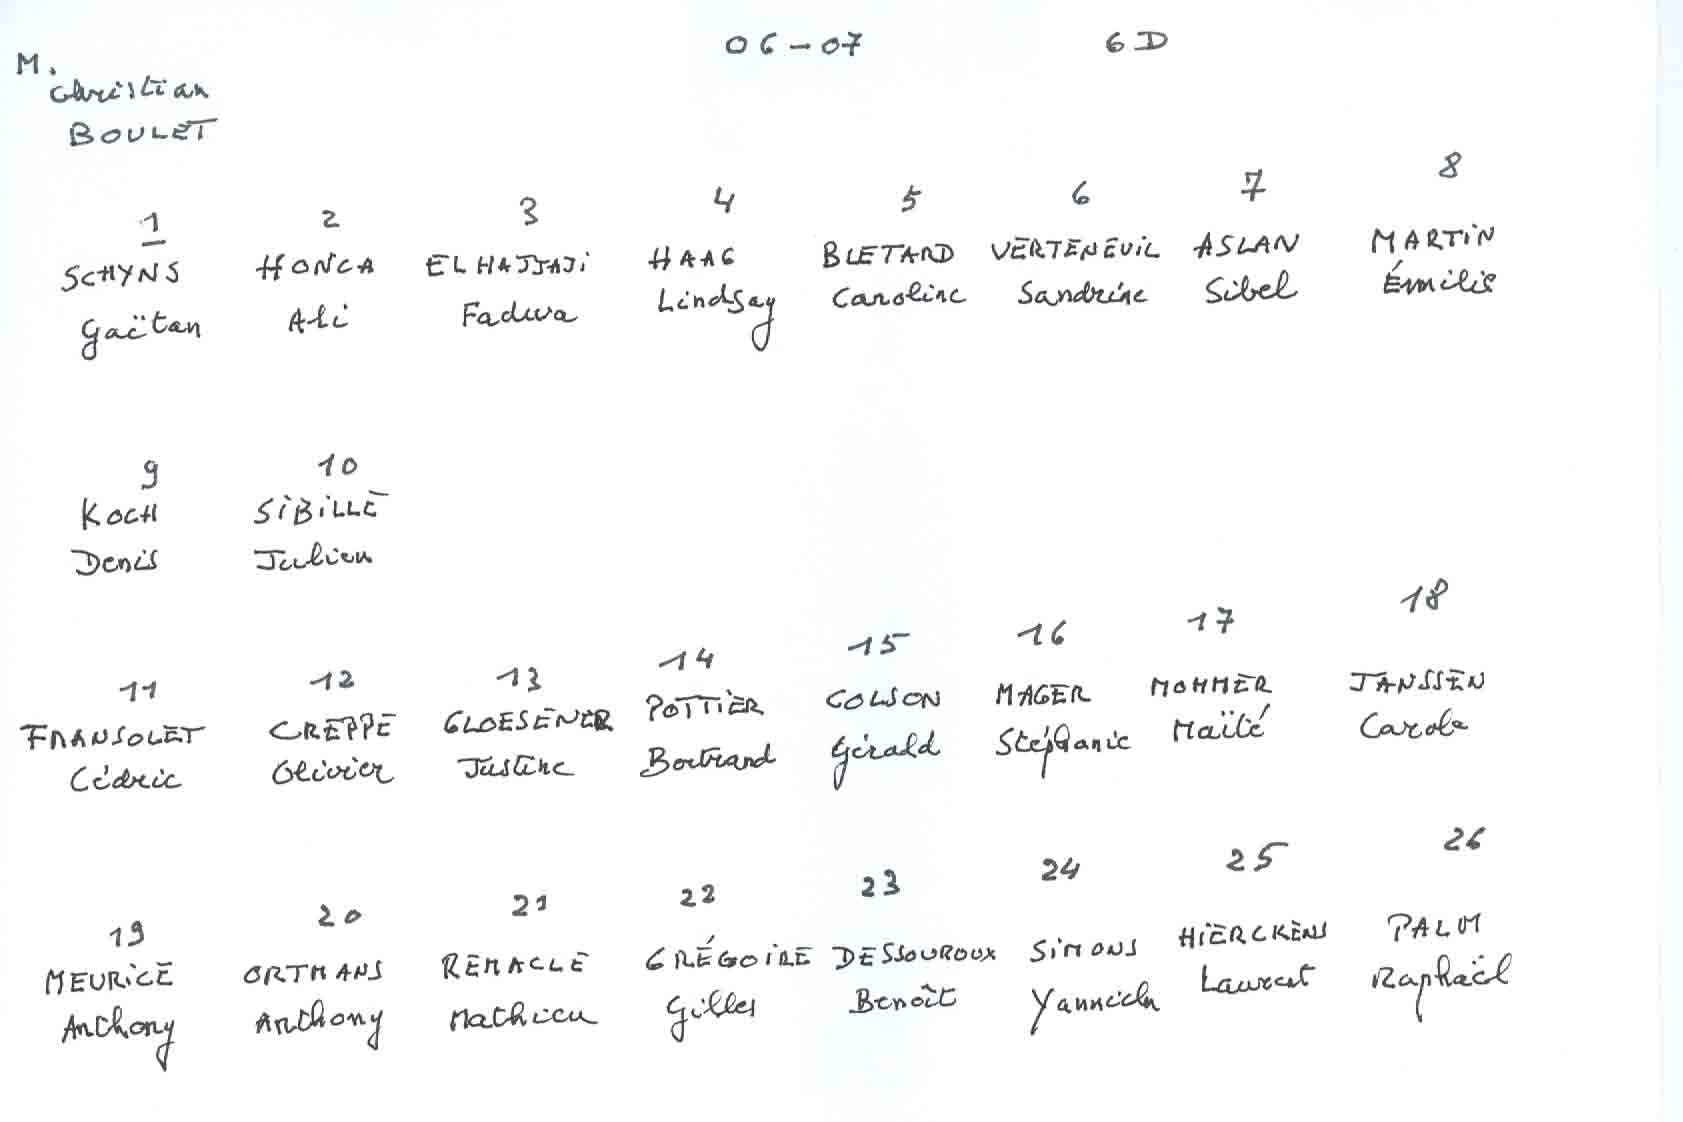 06-07 6D
M.
Christian
BOULET
1 2 3 4 5 6 7 8
SCHYNS HONCA ELHAJJAJI HAAG BLETARD VERTENEUIL ASLAN MARTIN
Gaëtan Ali Fadwa Lindsay Caroline Sandrine Sibel Émilie
9 10
KOCH SIBILLE
Denis Julien
11 12 13 14 15 16 17 18
FRANSOLET CREPPE GLOESENER POTTIER COLSON MAGER MOMMER JANSSEN
Cédric Olivier Justine Bertrand Gérald Stéphanie Maïté Carole
19 20 21 22 23 24 25 26
MEURICE ORTMANS REMACLE GRÉGOIRE DESSOUROUX SIMONS HIERCKENS PALM
Anthony Anthony Mathieu Gilles Benoît Yannick Laurent Raphaël